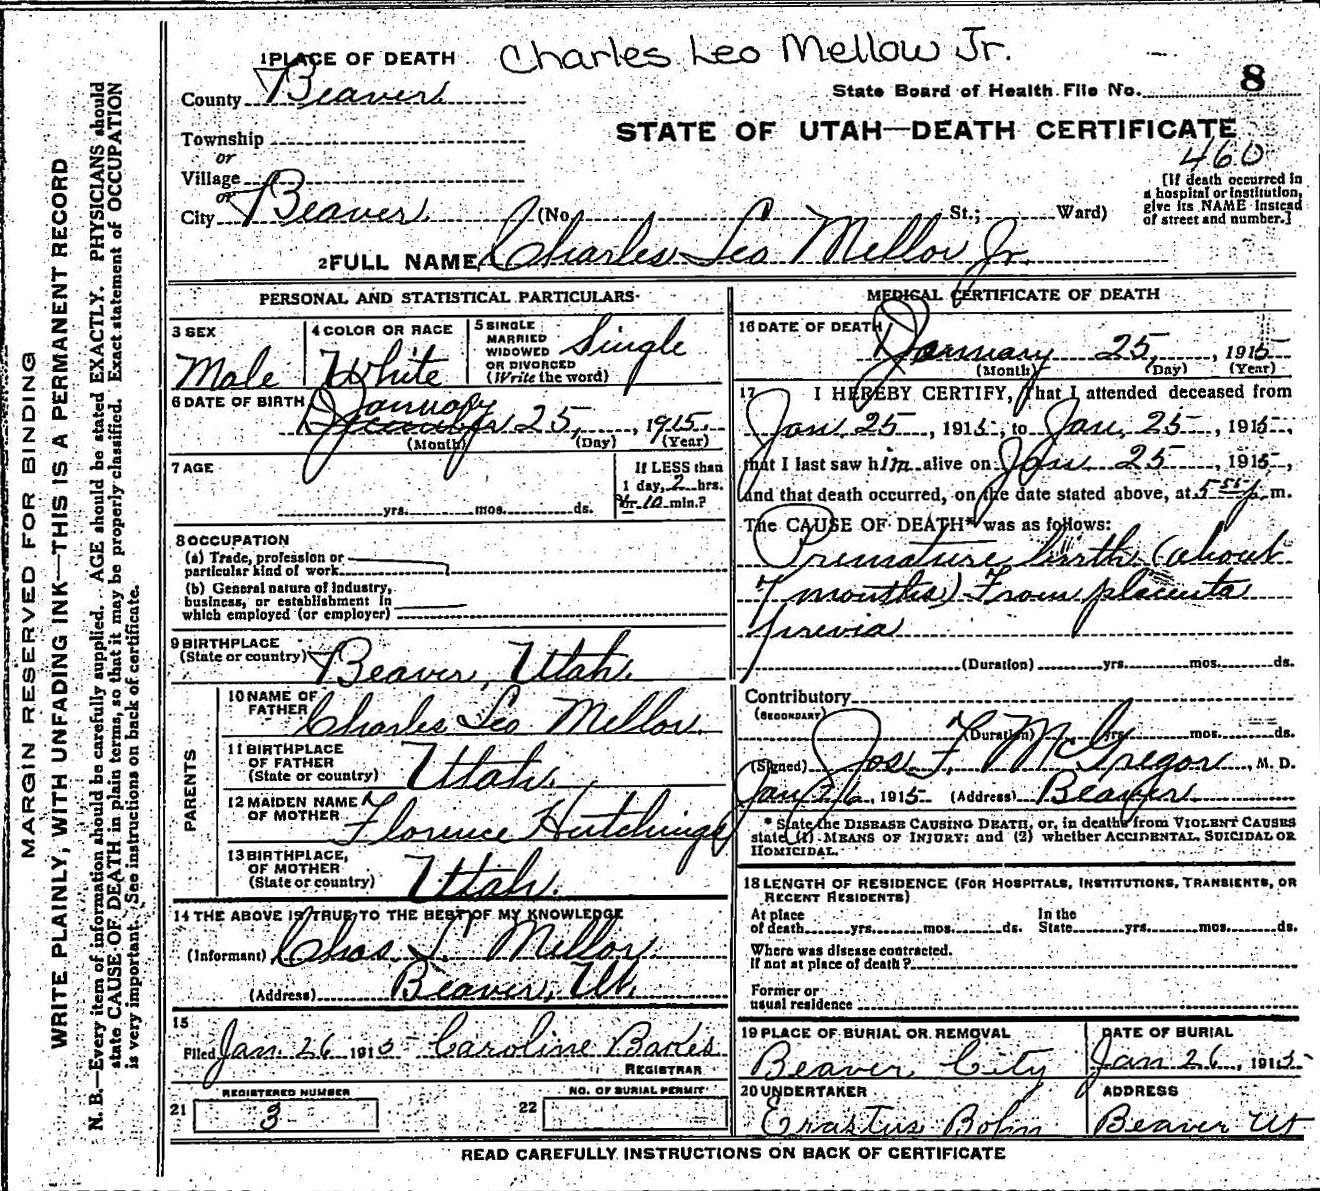 Charles Leo Mellow Jr.
1 PLACE OF DEATH
County Beaver
State Board of Health File No. 8
STATE OF UTAH—DEATH CERTIFICATE
460
Township
or
Village
or
City Beaver (No. St.; Ward)
[If death occurred in
a hospital or institution,
give its NAME instead
of street and number.]
2 FULL NAME Charles Leo Mellor Jr.
PERSONAL AND STATISTICAL PARTICULARS
3 SEX
Male
4 COLOR OR RACE
White
5 SINGLE
MARRIED
WIDOWED
OR DIVORCED
(Write the word)
Single
6 DATE OF BIRTH
January
25, 1915.
(Month) (Day) (Year)
7 AGE
yrs. mos. ds.
If LESS than
1 day, 2 hrs.
or 10 min.?
8 OCCUPATION
(a) Trade, profession or
particular kind of work
(b) General nature of industry,
business, or establishment in
which employed (or employer)
9 BIRTHPLACE
(State or country) Beaver, Utah.
PARENTS
10 NAME OF
FATHER Charles Leo Mellor.
11 BIRTHPLACE
OF FATHER
(State or country) Utah.
12 MAIDEN NAME
OF MOTHER Florence Hutchings
13 BIRTHPLACE,
OF MOTHER
(State or country) Utah.
14 THE ABOVE IS TRUE TO THE BEST OF MY KNOWLEDGE
(Informant) Chas. L. Mellor.
(Address) Beaver, Ut.
15
Filed Jan 26 1915 Caroline Bakes
REGISTRAR
REGISTERED NUMBER
21 3
NO. OF BURIAL PERMIT
22
MEDICAL CERTIFICATE OF DEATH
16 DATE OF DEATH
January 25, , 1915
(Month) (Day) (Year)
17 I HEREBY CERTIFY, That I attended deceased from
Jan. 25, 1915, to Jan. 25, 1915,
that I last saw him alive on Jan 25, 1915,
and that death occurred, on the date stated above, at 5 55 p. m.
The CAUSE OF DEATH* was as follows:
Premature birth (about
7 months) From placenta
previa
(Duration) yrs. mos. ds.
Contributory
(SECONDARY)
(Duration) yrs. mos. ds.
(Signed) Jos. F. McGregor, M. D.
Jan 26, 1915 (Address) Beaver.
* State the DISEASE CAUSING DEATH, or, in deaths from VIOLENT CAUSES
state (1) MEANS OF INJURY; and (2) whether ACCIDENTAL, SUICIDAL OR
HOMICIDAL.
18 LENGTH OF RESIDENCE (FOR HOSPITALS, INSTITUTIONS, TRANSIENTS, OR
RECENT RESIDENTS)
At place In the
of death yrs. mos. ds. State yrs. mos. ds.
Where was disease contracted.
If not at place of death?
Former or
usual residence
19 PLACE OF BURIAL OR REMOVAL
Beaver City
DATE OF BURIAL
Jan 26, 1915
20 UNDERTAKER
Erastus Bohn
ADDRESS
Beaver Ut
READ CAREFULLY INSTRUCTIONS ON BACK OF CERTIFICATE
MARGIN RESERVED FOR BINDING
WRITE PLAINLY, WITH UNFADING INK—THIS IS A PERMANENT RECORD
N. B.—Every item of information should be carefully supplied. AGE should be stated EXACTLY. PHYSICIANS should
state CAUSE OF DEATH in plain terms, so that it may be properly classified. Exact statement of OCCUPATION
is very important. See instructions on back of certificate.